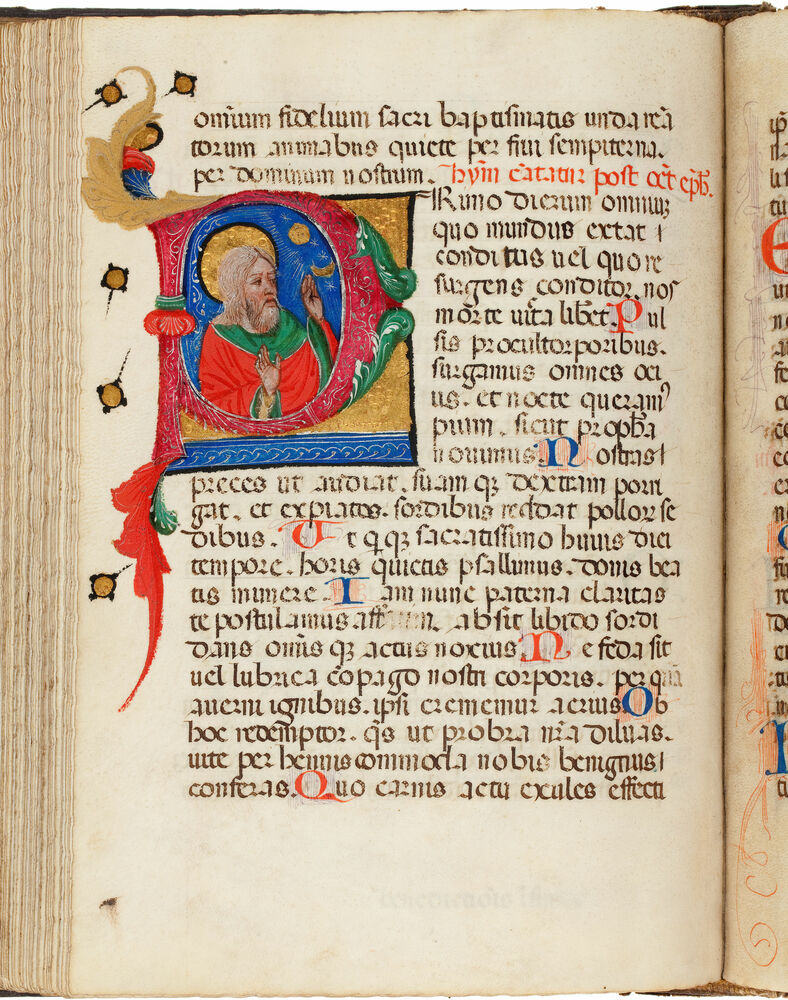 omnium fidelium sacri baptismatis unda reā
torum animabus quiete per frui sempiterna.
per dominum nostrum. hym̄ cātatur post oct̄ ep̄h.
PRimo dierum omnium
quo mundus extat
conditus uel quo re
surgens conditor nos
morte uicta liberet. Pul
sis procul torporibus.
surgamus omnes oci
us. et nocte queramꝰ
pium. sicut propha
nouimus. Nostras
preces ut audiat. suam qꝫ dextram porri
gat. et expiatos. sordibus reddat pollor se
dibus. Ut qqꝫ sacratissimo huius diei
tempore. horis quietis psallimus. donis bea
tis munere. Iam nunc paterna claritas
te postulamus aff absit libido sordi
dans omīs qꝫ actus noxius. Ne feda sit
uel lubrica cōpago nostri corporis. per quā
auerni ignibus. ipsi crememur acrius. Ob
hoc redemptor. q̄s ut probra nr̄a diluas.
uite perhennis commoda nobis benignius
conferas. Quo carnis actu exules effecti